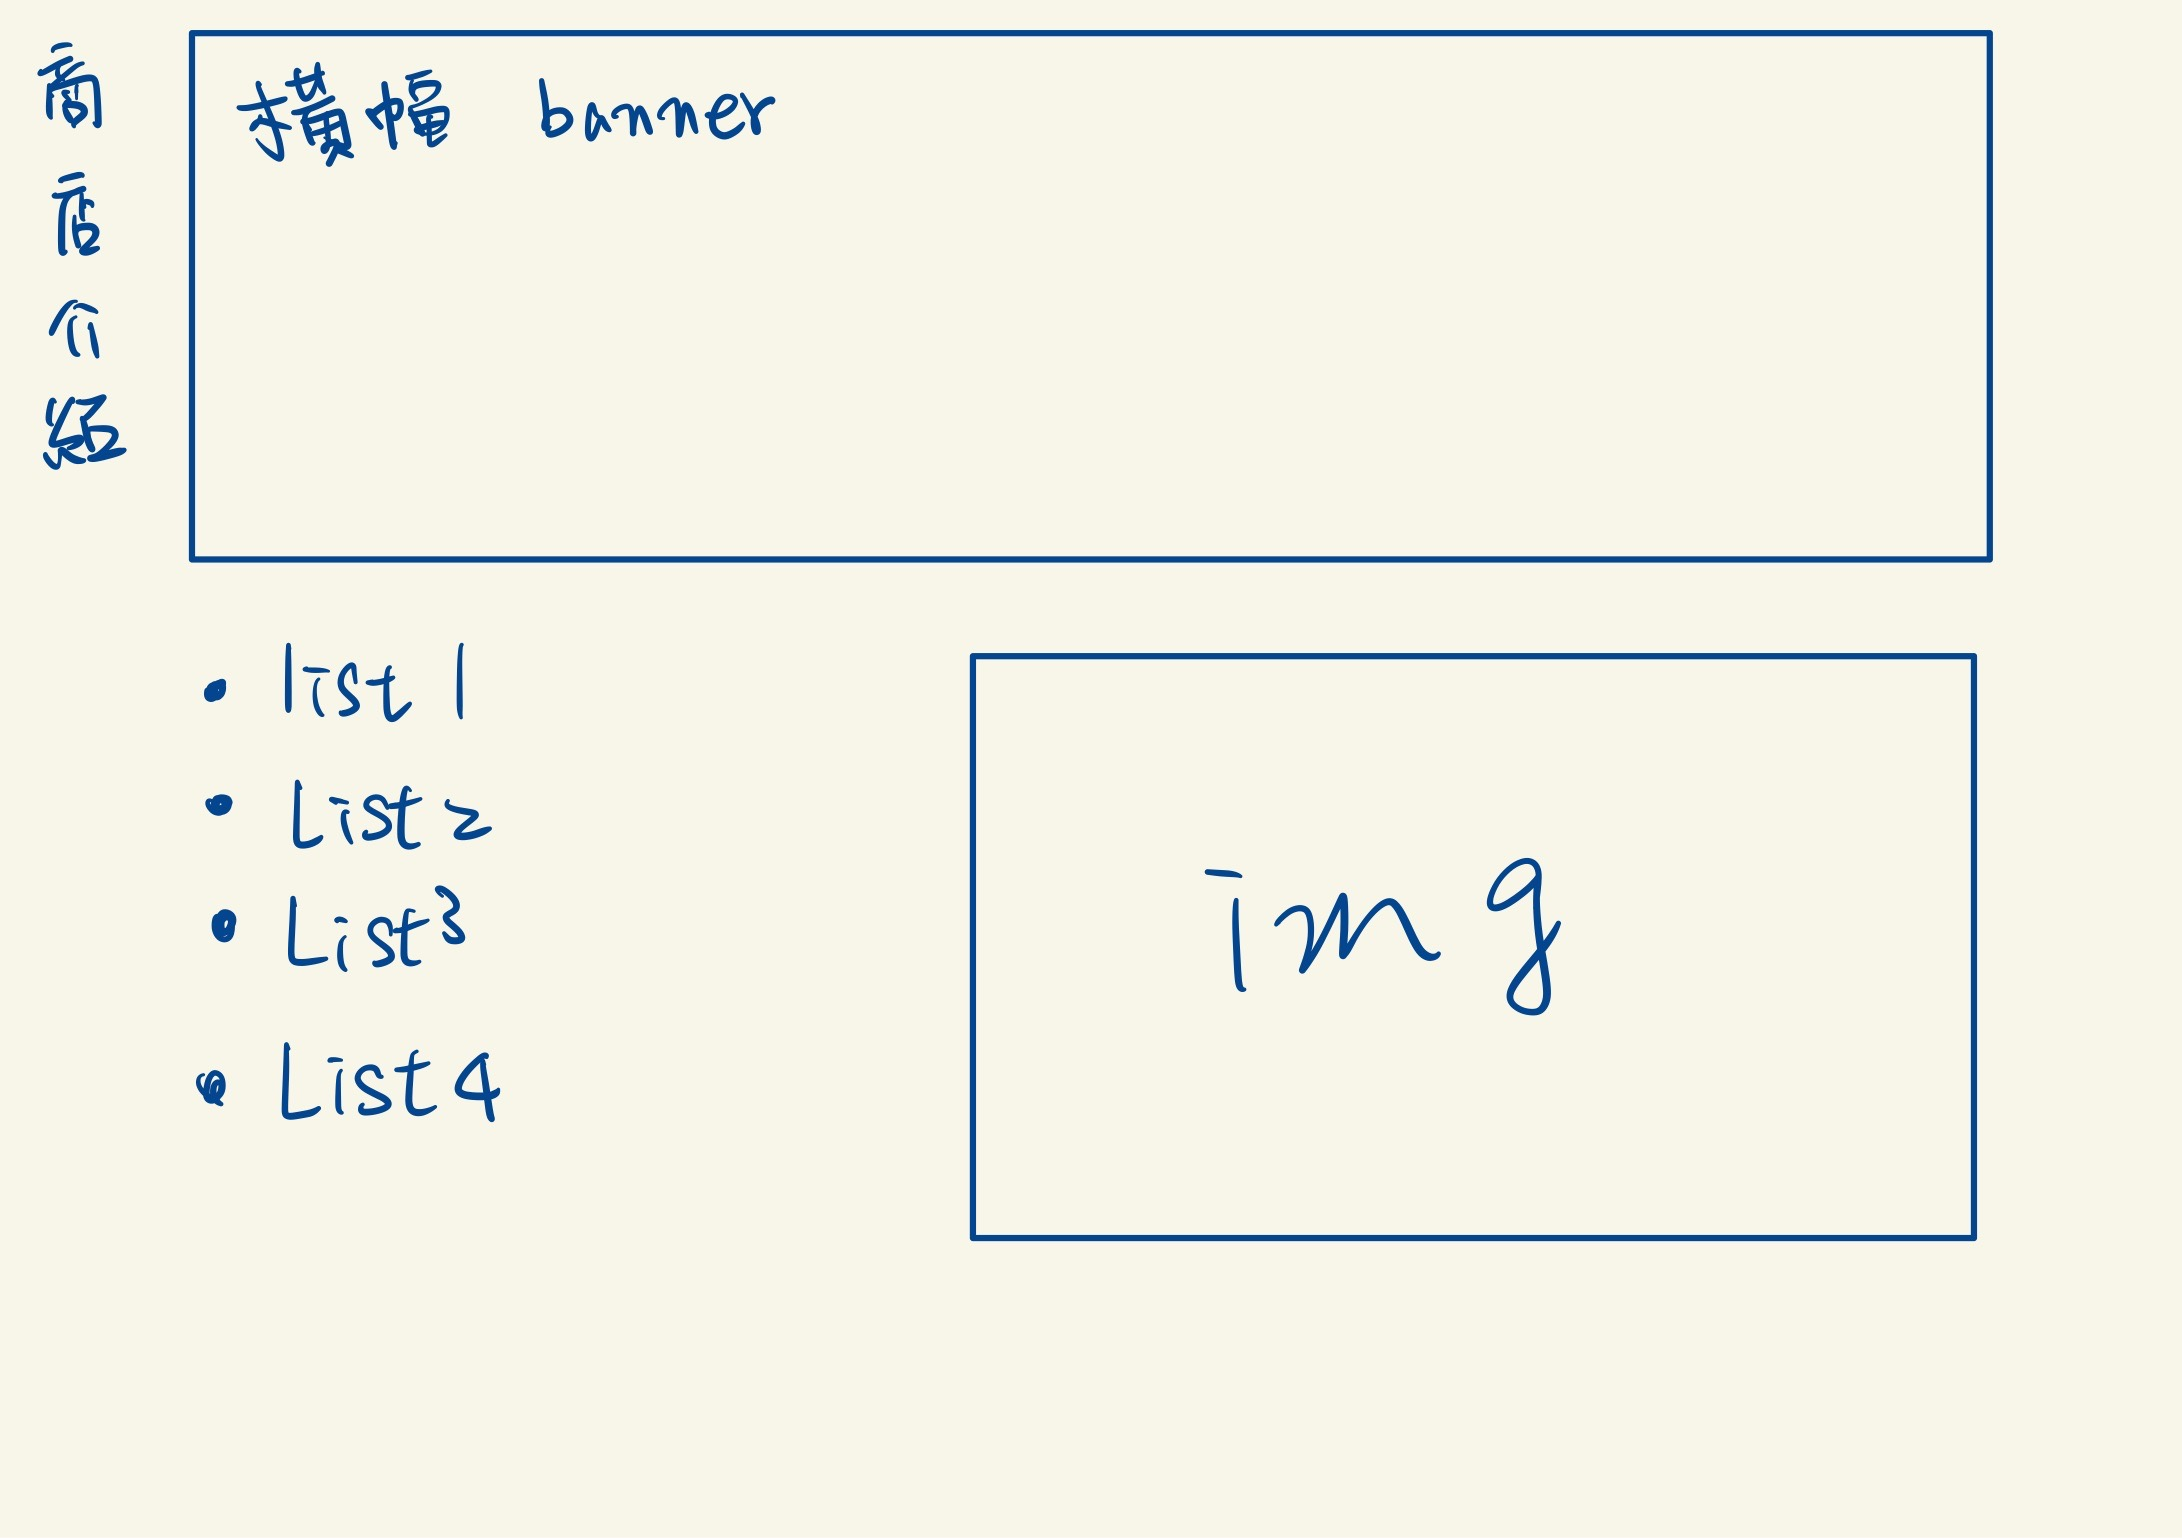 商店介紹
橫幅 banner
list 1
List 2
List 3
List 4
img